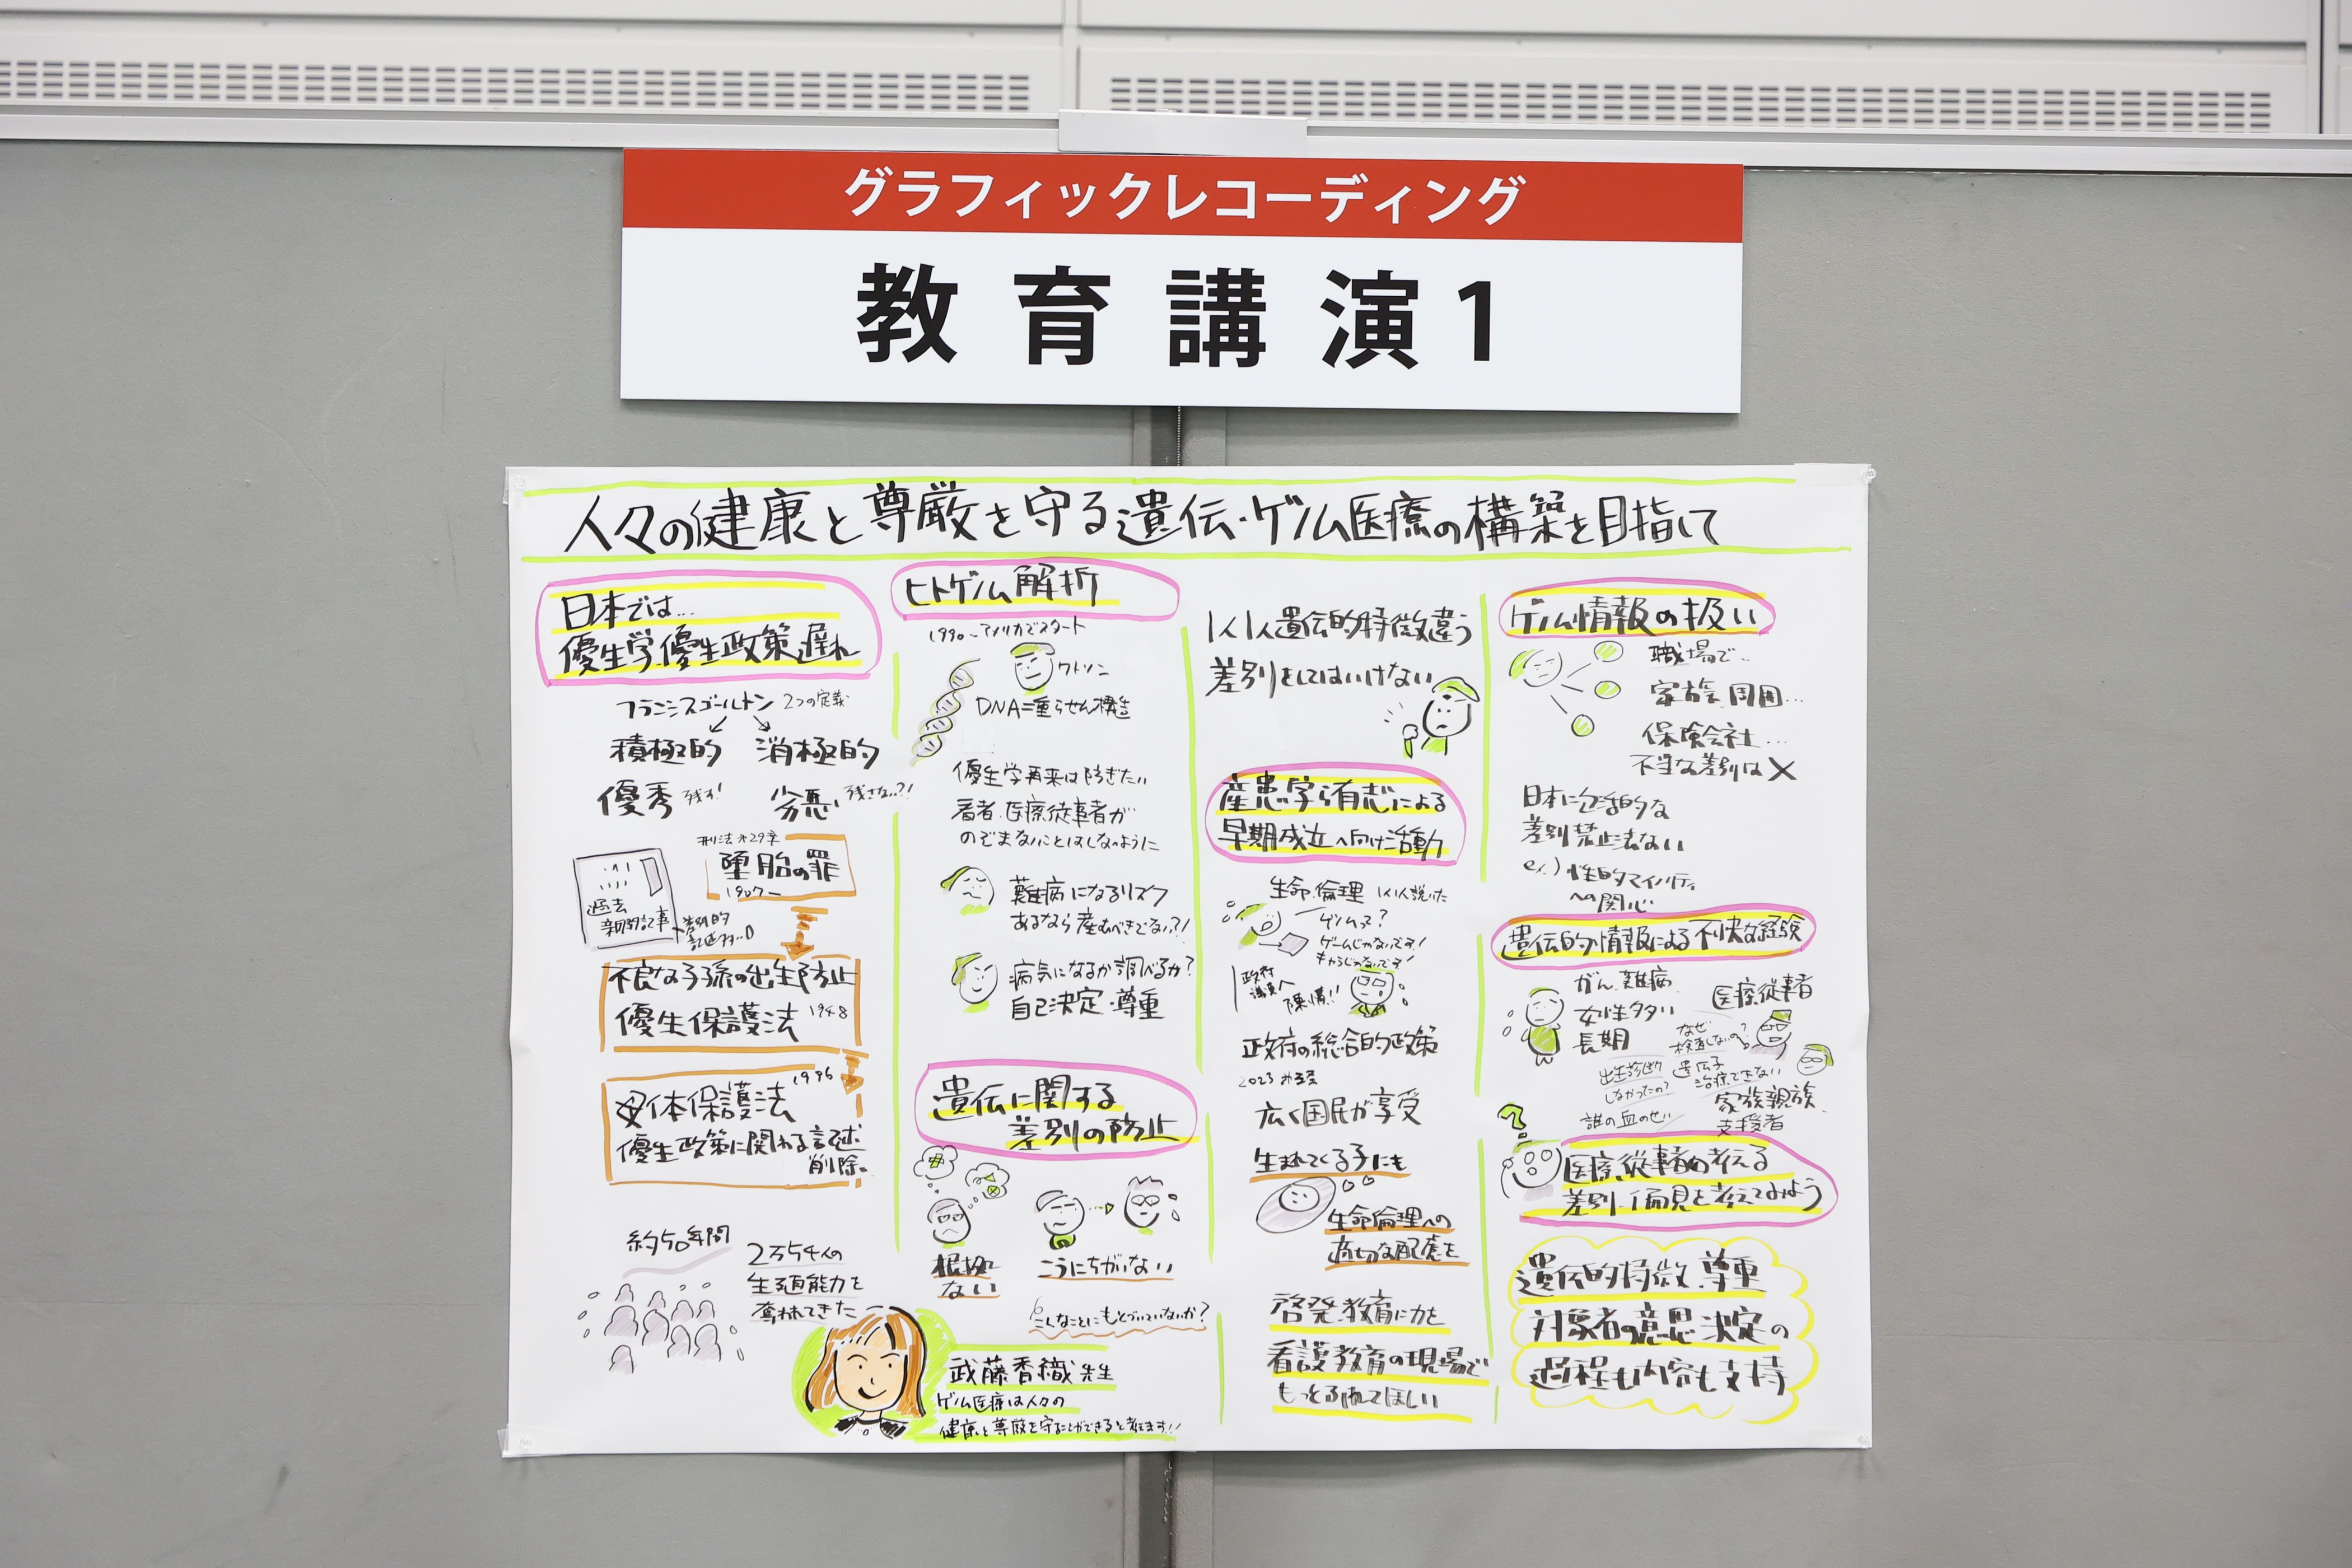 グラフィックレコーディング
教育講演1
人々の健康と尊厳を守る遺伝・ゲノム医療の構築を目指して
日本では…
優生学、優生政策遅れ
フランシスゴールトン 2つの定義
積極的 消極的
優秀 残す! 劣悪 残さない?!
刑法 第29章
堕胎の罪
1907ー
過去
新聞記事
差別的
不良な子孫の出生防止
優生保護法 1948
母体保護法 1996
優生政策に関わる記述
削除。
約50年間
2万5千人の
生殖能力を
奪われてきた
ヒトゲノム解析
1990〜アメリカでスタート
ワトソン
DNA二重らせん構造
優生学再来は防ぎたい
看者、医療従事者が
のぞまないことはしないように
難病になるリスク
あるなら産むべきでない?!
病気になるか調べるか?
自己決定・尊重
遺伝に関する
差別の防止
根拠
ない
こうにちがいない
こんなことにもとづいていないか?
武藤香織先生
ゲノム医療は人々の
健康と尊厳を守ることができると考えます!!
1人1人遺伝的特徴違う
差別をしてはいけない
産患学ら有志による
早期成立へ向けた活動
生命、倫理 1人1人説いた
ゲノムって?
ゲームじゃないです!
政府
議員へ
陳情!!
政府の総合的政策
2023
広く国民が享受
生まれてくる子にも
生命倫理への
適切な配慮を
啓発、教育に力を
看護教育の現場で
もっと
してほしい
ゲノム情報の扱い
職場で…
家族、周囲…
保険会社…
不当な差別は×
日本に包括的な
差別禁止法ない
ex.) 性的マイノリティ
への関心
遺伝的情報による不快な経験
がん、難病
女性多い
長期
医療従事者
なぜ
検査しないの?
出生診断
しなかったの?
遺伝子
治療できない
誰の血のせい
家族親族
支援者
医療従事者の考える
差別、偏見を考えてみよう
遺伝的特徴、尊重
対象者の意思決定の
過程も内容も支持